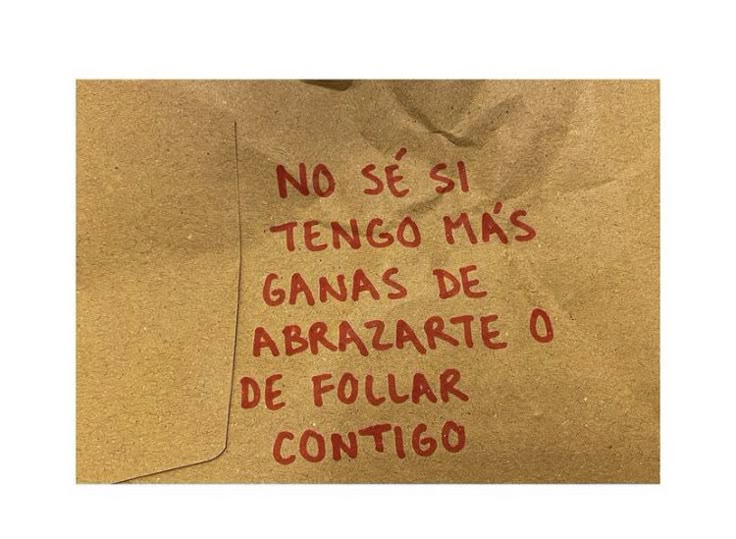 NO SÉ SI
TENGO MÁS
GANAS DE
ABRAZARTE O
DE FOLLAR
CONTIGO